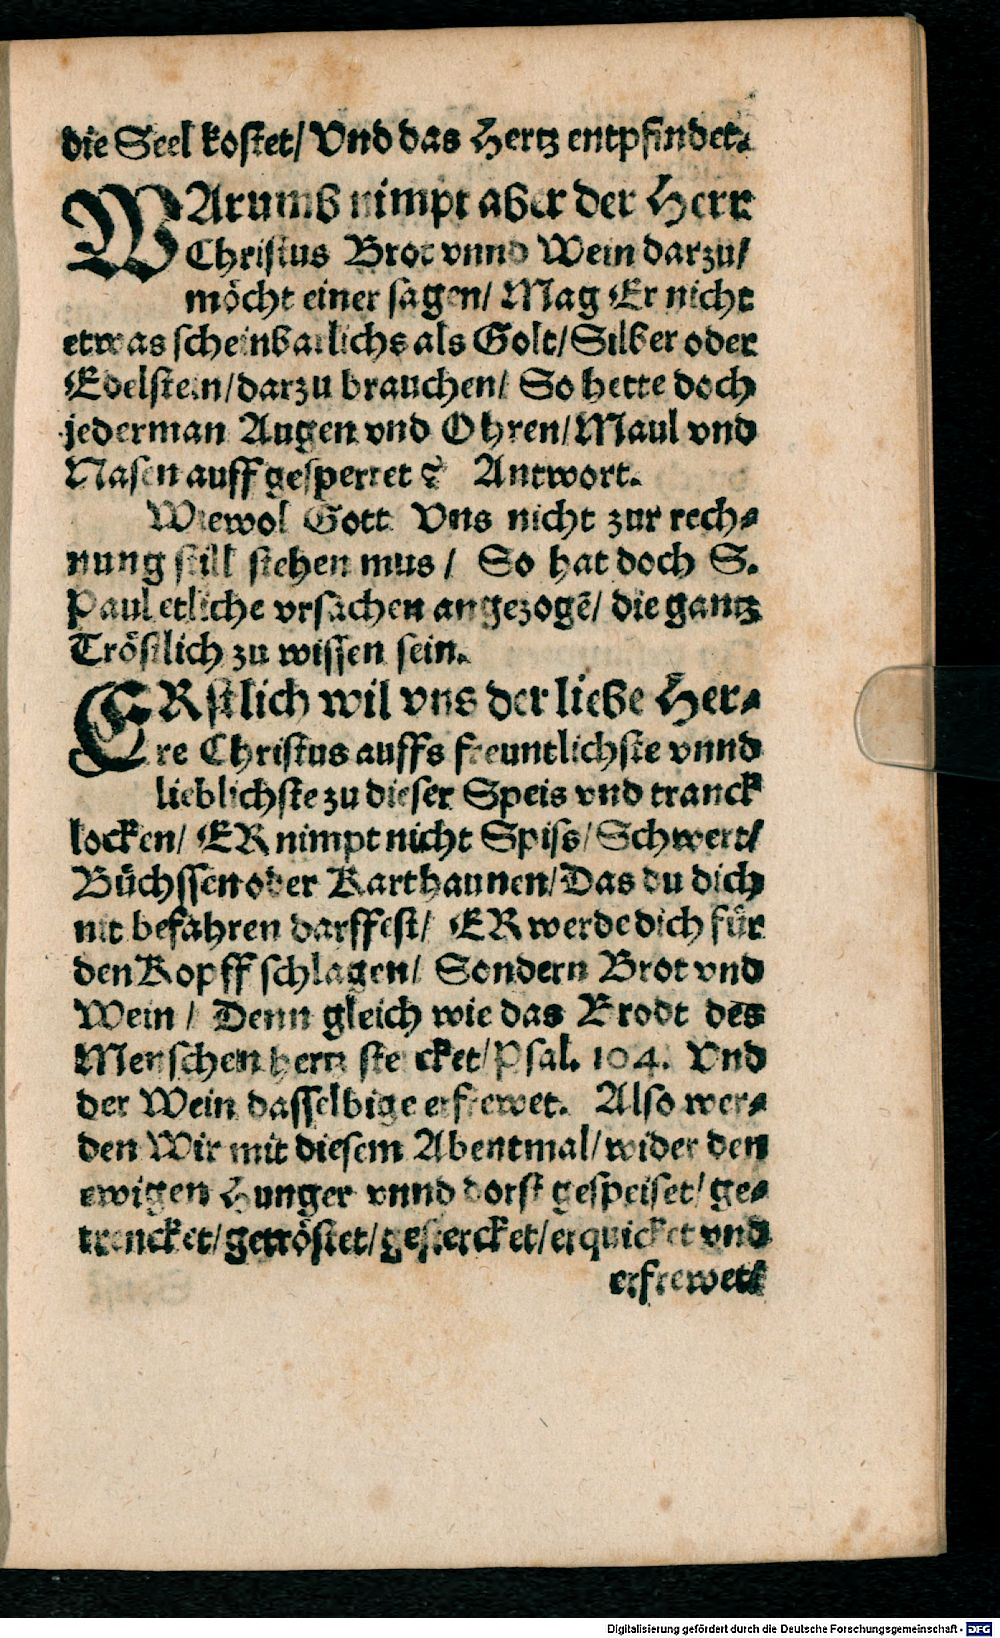 die Seel kostet/ Vnd das Hertz entpfindet.
WArumb nimpt aber der Herr
Christus Brot vnnd Wein darzu/
möcht einer sagen/ Mag Er nicht
etwas scheinbarlichs als Golt/ Silber oder
Edelstein/ darzu brauchen/ So hette doch
jederman Augen vnd Ohren/ Maul vnd
Nasen auffgesperret? Antwort.
Wiewol Gott Vns nicht zur rech-
nung still stehen mus/ So hat doch S.
Paul etliche vrsachen angezogē/ die gantz
Tröstlich zu wissen sein.
ERstlich wil vns der liebe Her-
re Christus auffs freuntlichste vnnd
lieblichste zu dieser Speis vnd tranck
locken/ ER nimpt nicht Spiss/ Schwert/
Büchssen oder Karthaunen/ Das du dich
nit befahren darffest/ ER werde dich für
den Kopff schlagen/ Sondern Brot vnd
Wein/ Denn gleich wie das Brodt des
Menschen hertz stercket/ Psal. 104. Vnd
der Wein dasselbige erfrewet. Also wer-
den Wir mit diesem Abentmal/ wider den
ewigen Hunger vnnd dorst gespeiset/ ge-
trencket/ getröstet/ gestercket/ erquicket vnd
erfrewet
Digitalisierung gefördert durch die Deutsche Forschungsgemeinschaft - DFG